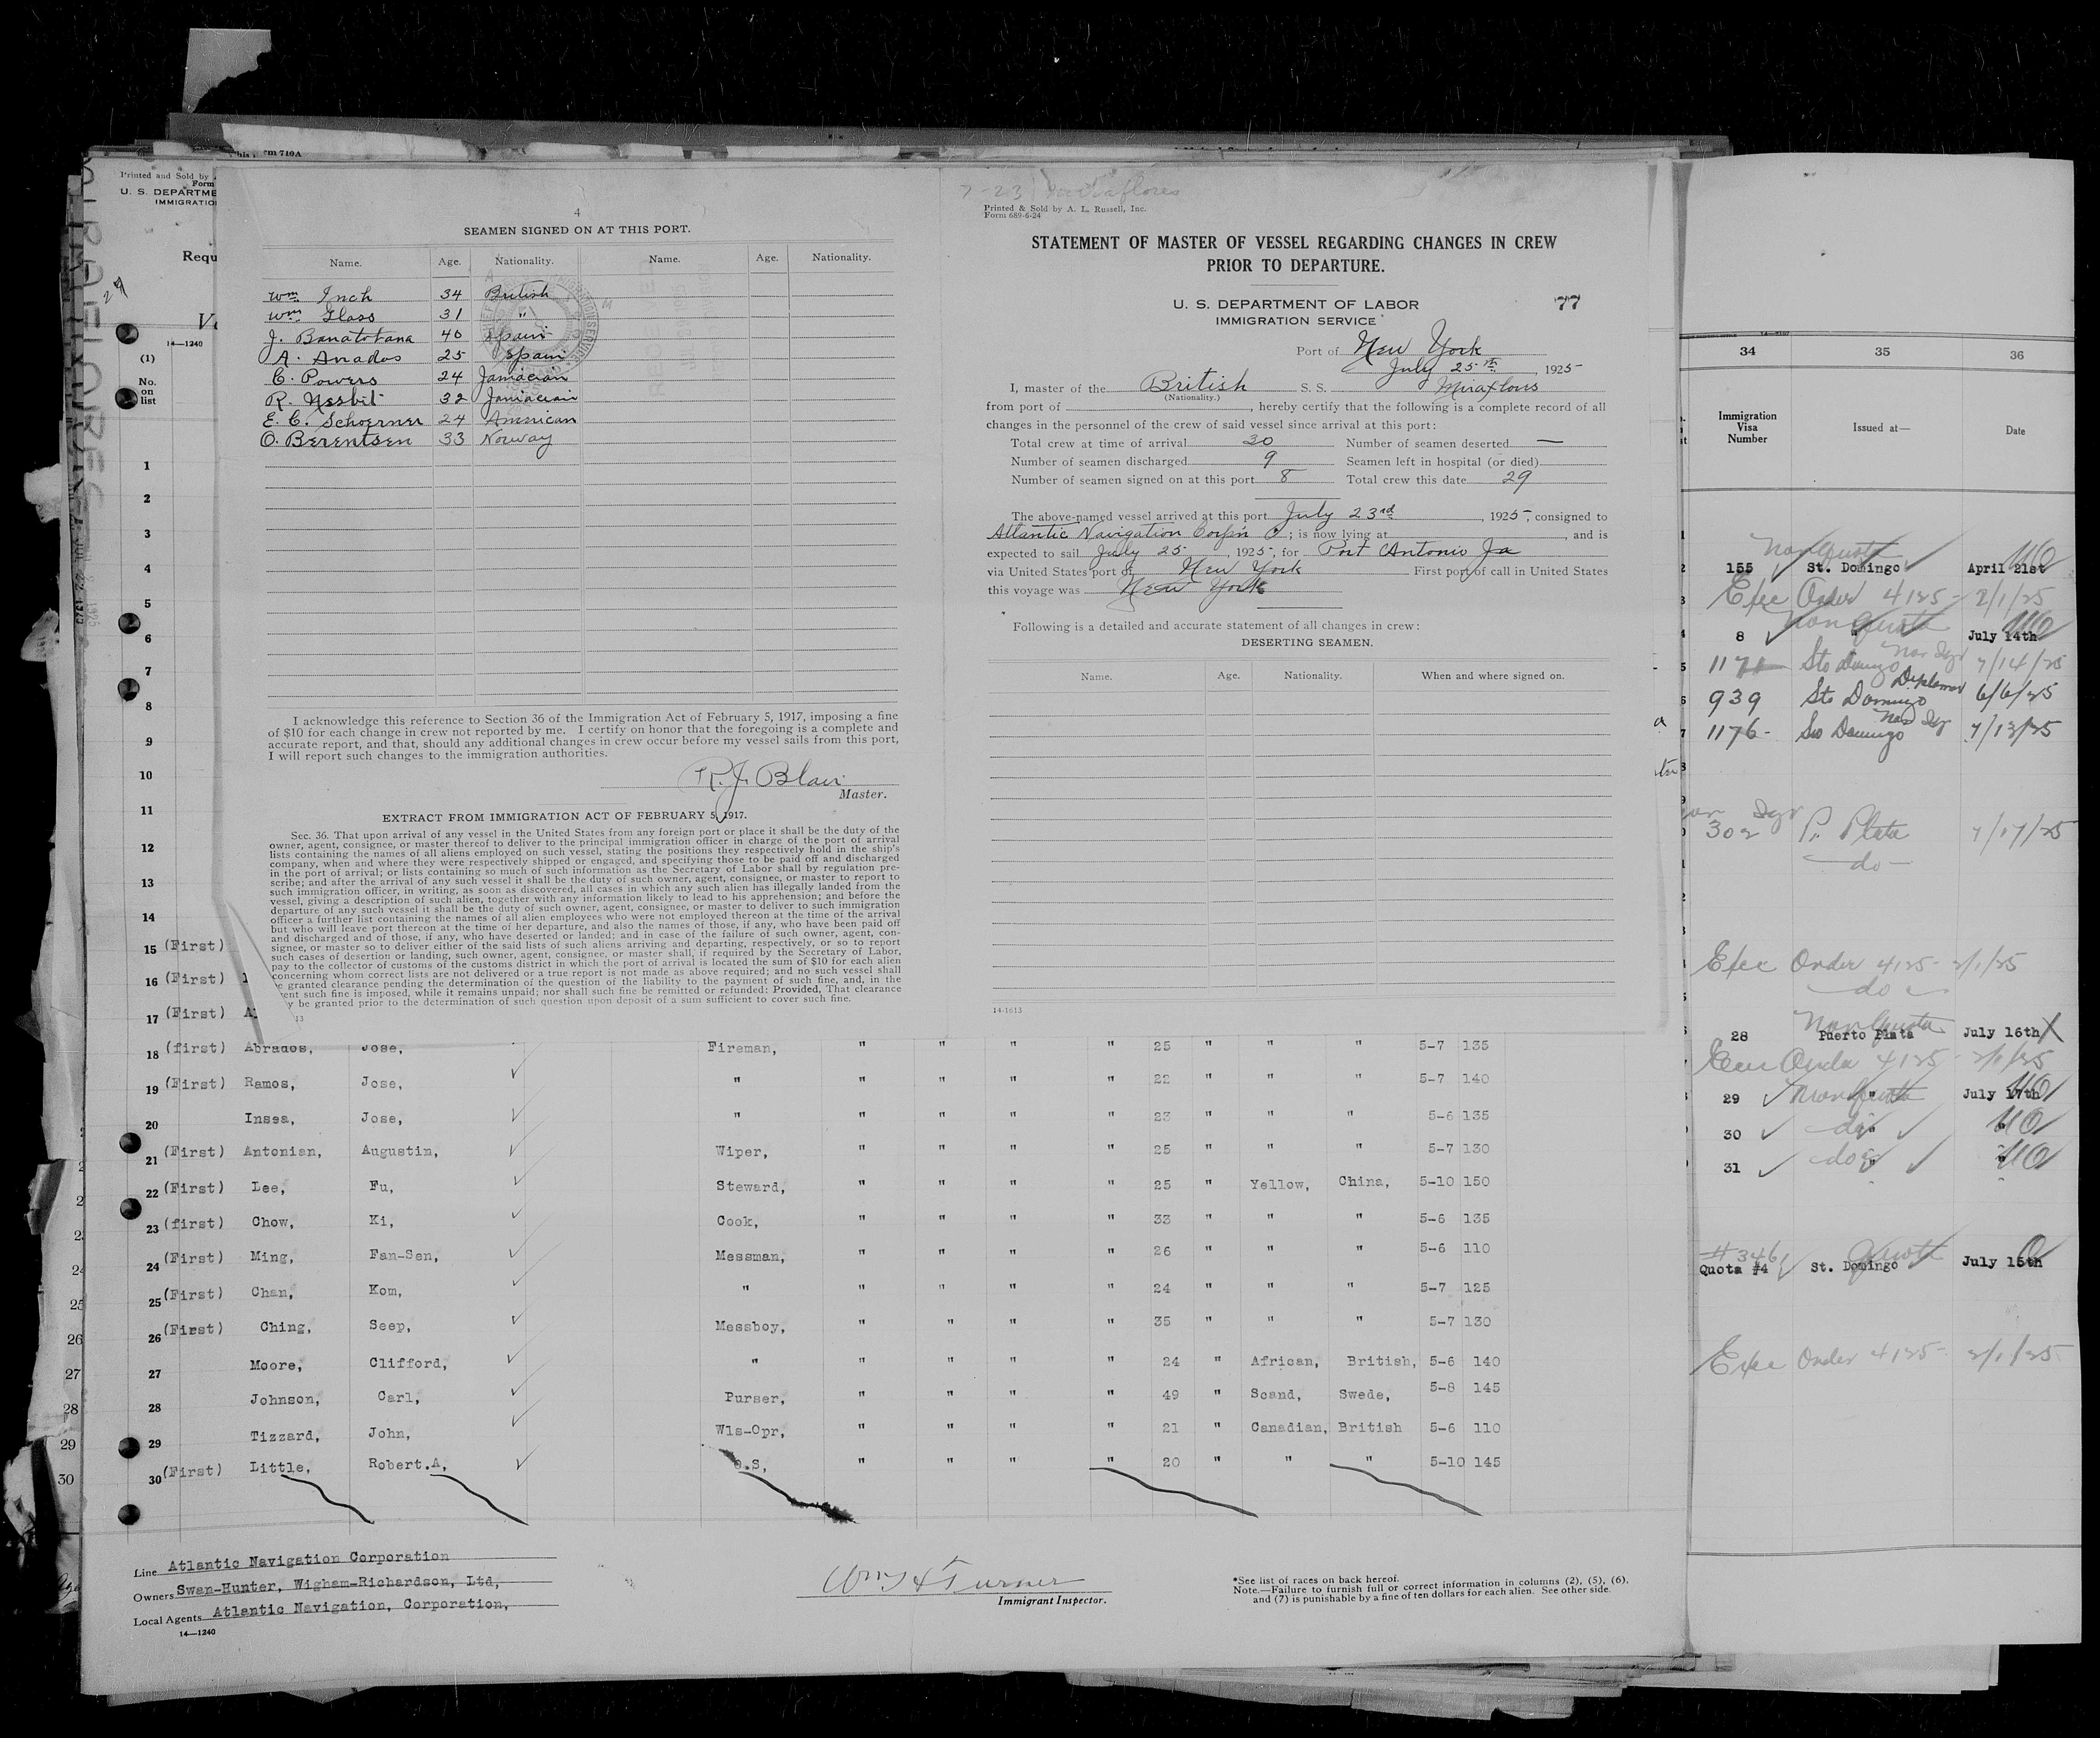 4
SEAMEN SIGNED ON AT THIS PORT.
Name. Age. Nationality. Name. Age. Nationality.
Wm Inch 34 British
Wm Glass 31 "
J. Banatotana 40 Spain
A. Anados 25 Spain
C. Powers 24 Jamaican
R. Nesbit 32 Jamaican
E. C. Schoerner 24 American
O. Berentsen 33 Norway
I acknowledge this reference to Section 36 of the Immigration Act of February 5, 1917, imposing a fine
of $10 for each change in crew not reported by me. I certify on honor that the foregoing is a complete and
accurate report, and that, should any additional changes in crew occur before my vessel sails from this port,
I will report such changes to the immigration authorities.
R. J. Blair
Master.
EXTRACT FROM IMMIGRATION ACT OF FEBRUARY 5, 1917.
Sec. 36. That upon arrival of any vessel in the United States from any foreign port or place it shall be the duty of the
owner, agent, consignee, or master thereof to deliver to the principal immigration officer in charge of the port of arrival
lists containing the names of all aliens employed on such vessel, stating the positions they respectively hold in the ship's
company, when and where they were respectively shipped or engaged, and specifying those to be paid off and discharged
in the port of arrival; or lists containing so much of such information as the Secretary of Labor shall by regulation pre-
scribe; and after the arrival of any such vessel it shall be the duty of such owner, agent, consignee, or master to report to
such immigration officer, in writing, as soon as discovered, all cases in which any such alien has illegally landed from the
vessel, giving a description of such alien, together with any information likely to lead to his apprehension; and before the
departure of any such vessel it shall be the duty of such owner, agent, consignee, or master to deliver to such immigration
officer a further list containing the names of all alien employees who were not employed thereon at the time of the arrival
but who will leave port thereon at the time of her departure, and also the names of those, if any, who have been paid off
and discharged and of those, if any, who have deserted or landed; and in case of the failure of such owner, agent, con-
signee, or master so to deliver either of the said lists of such aliens arriving and departing, respectively, or so to report
such cases of desertion or landing, such owner, agent, consignee, or master shall, if required by the Secretary of Labor,
pay to the collector of customs of the customs district in which the port of arrival is located the sum of $10 for each alien
concerning whom correct lists are not delivered or a true report is not made as above required; and no such vessel shall
be granted clearance pending the determination of the question of the liability to the payment of such fine, and, in the
ent such fine is imposed, while it remains unpaid; nor shall such fine be remitted or refunded: Provided, That clearance
y be granted prior to the determination of such question upon deposit of a sum sufficient to cover such fine.
13
7-23 Miraflores
Printed & Sold by A. L. Russell, Inc.
Form 689-6-24
STATEMENT OF MASTER OF VESSEL REGARDING CHANGES IN CREW
PRIOR TO DEPARTURE.
U. S. DEPARTMENT OF LABOR
IMMIGRATION SERVICE
77
Port of New York
July 25th, 1925
I, master of the British S. S. Miraflores
(Nationality.)
from port of , hereby certify that the following is a complete record of all
changes in the personnel of the crew of said vessel since arrival at this port:
Total crew at time of arrival 30 Number of seamen deserted —
Number of seamen discharged 9 Seamen left in hospital (or died)
Number of seamen signed on at this port 8 Total crew this date 29
The above-named vessel arrived at this port July 23rd, 1925, consigned to
Atlantic Navigation Corp'n ; is now lying at , and is
expected to sail July 25, 1925, for Port Antonio Ja
via United States port of New York First port of call in United States
this voyage was New York
Following is a detailed and accurate statement of all changes in crew:
DESERTING SEAMEN.
Name. Age. Nationality. When and where signed on.
14-1613
Printed and Sold by
Form
U. S. DEPARTME
IMMIGRATIO
Requ
14—1240
(1)
No.
on
list
1
2
3
4
5
6
7
8
9
10
11
12
13
14
15 (First)
16 (First)
17 (First)
18 (first) Abrados, Jose, Fireman, " " " " 25 " " " 5-7 135
19 (First) Ramos, Jose, " " " " " 22 " " " 5-7 140
20 Insea, Jose, " " " " " 23 " " " 5-6 135
21 (First) Antonian, Augustin, Wiper, " " " " 25 " " " 5-7 130
22 (First) Lee, Fu, Steward, " " " " 25 " Yellow, China, 5-10 150
23 (first) Chow, Ki, Cook, " " " " 33 " " " 5-6 135
24 (First) Ming, Fan-Sen, Messman, " " " " 26 " " " 5-6 110
25 (First) Chan, Kom, " " " " " 24 " " " 5-7 125
26 (First) Ching, Seep, Messboy, " " " " 35 " " " 5-7 130
27 Moore, Clifford, " " " " " 24 " African, British, 5-6 140
28 Johnson, Carl, Purser, " " " " 49 " Scand, Swede, 5-8 145
29 Tizzard, John, Wls-Opr, " " " " 21 " Canadian, British 5-6 110
30 (First) Little, Robert.A, O.S, " " " " 20 " " " 5-10 145
Line Atlantic Navigation Corporation
Owners Swan-Hunter, Wigham-Richardson, Ltd,
Local Agents Atlantic Navigation, Corporation,
14—1240
Wm H Turner
Immigrant Inspector.
*See list of races on back hereof.
Note.—Failure to furnish full or correct information in columns (2), (5), (6),
and (7) is punishable by a fine of ten dollars for each alien. See other side.
34 35 36
Immigration
Visa
Number
Issued at—
Date
Non Quota
155 St. Domingo April 21st
Exec Order 4125- 2/1/25
Non Quota
8 " July 14th
1171 Sto Domingo 7/14/25
939 Sto Domingo Diplomat 6/6/25
1176- Sto Domingo 7/13/25
302 P. Plata 7/17/25
do
Exec Order 4125- 2/1/25
do
Non Quota
28 Puerto Plata July 16th
Exec Order 4125- 2/1/25
29 Non Quota July 17th
30 do "
31 do "
#346
Quota #4 St. Domingo Quota July 15th
Exec Order 4125- 2/1/25